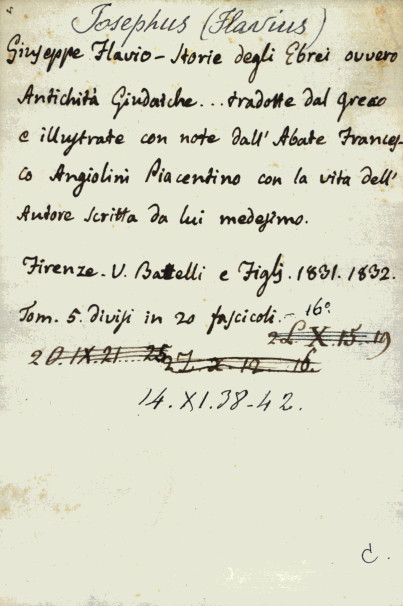 Josephus (Flavius)
Giuseppe Flavio - Storie degli Ebrei ovvero
Antichità Giudaiche... tradotte dal greco
e illustrate con note dall' Abate Frances-
co Angiolini Piacentino con la vita dell'
Autore scritta da lui medesimo.
Firenze. V. Battelli e Figlj. 1831. 1832.
Tom. 5. divisi in 20 fascicoli. - 16°
2 L. X. 15. 19
20. IX. 21 25
2 I. X. 12. 16.
14. XI. 38-42.
C.